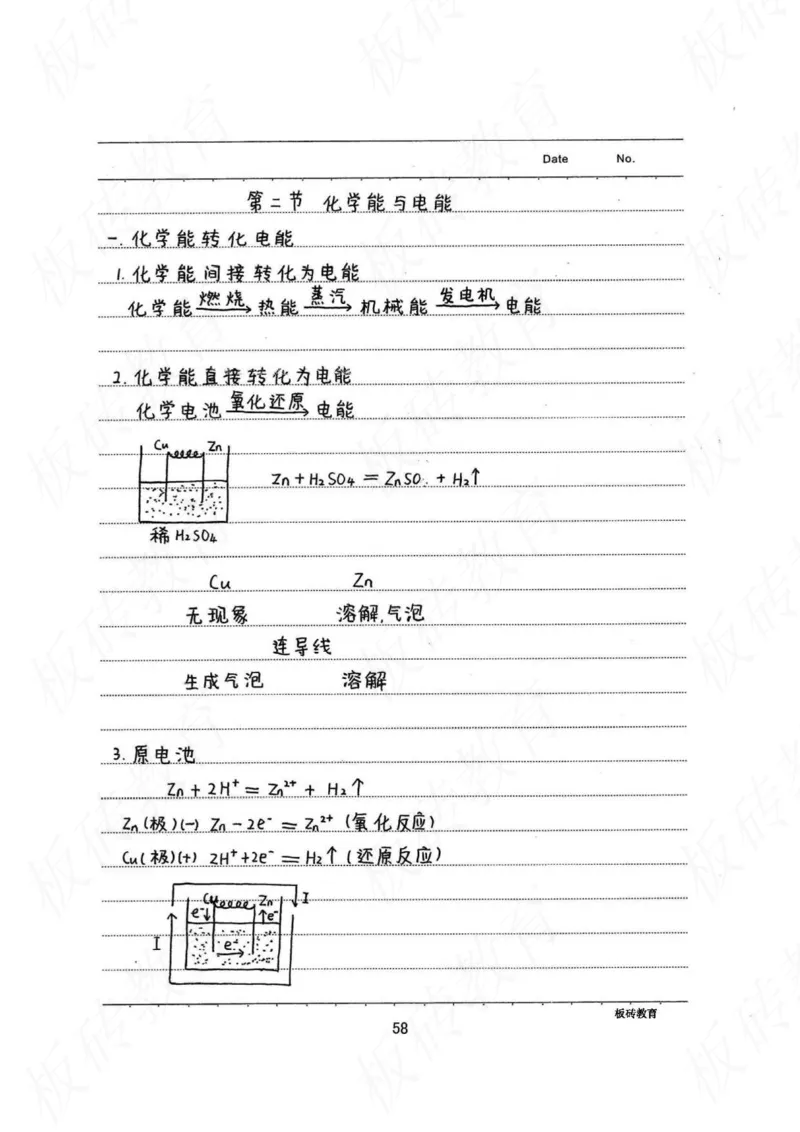 Date No.
第二节 化学能与电能
一.化学能转化电能
1.化学能间接转化为电能
化学能 燃烧→ 热能 蒸汽→ 机械能 发电机→ 电能
2.化学能直接转化为电能
化学电池 氧化还原→ 电能
Cu Zn
Zn+H₂SO₄=ZnSO +H₂↑
稀H₂SO₄
Cu Zn
无现象 溶解,气泡
连导线
生成气泡 溶解
3.原电池
Zn+2H⁺=Zn²⁺+H₂↑
Zn(极)(-) Zn-2e⁻=Zn²⁺(氧化反应)
Cu(极)(+) 2H⁺+2e⁻=H₂↑(还原反应)
Cu Zn I
e⁻↓ ↑e⁻
I e⁻
→
板砖教育
58